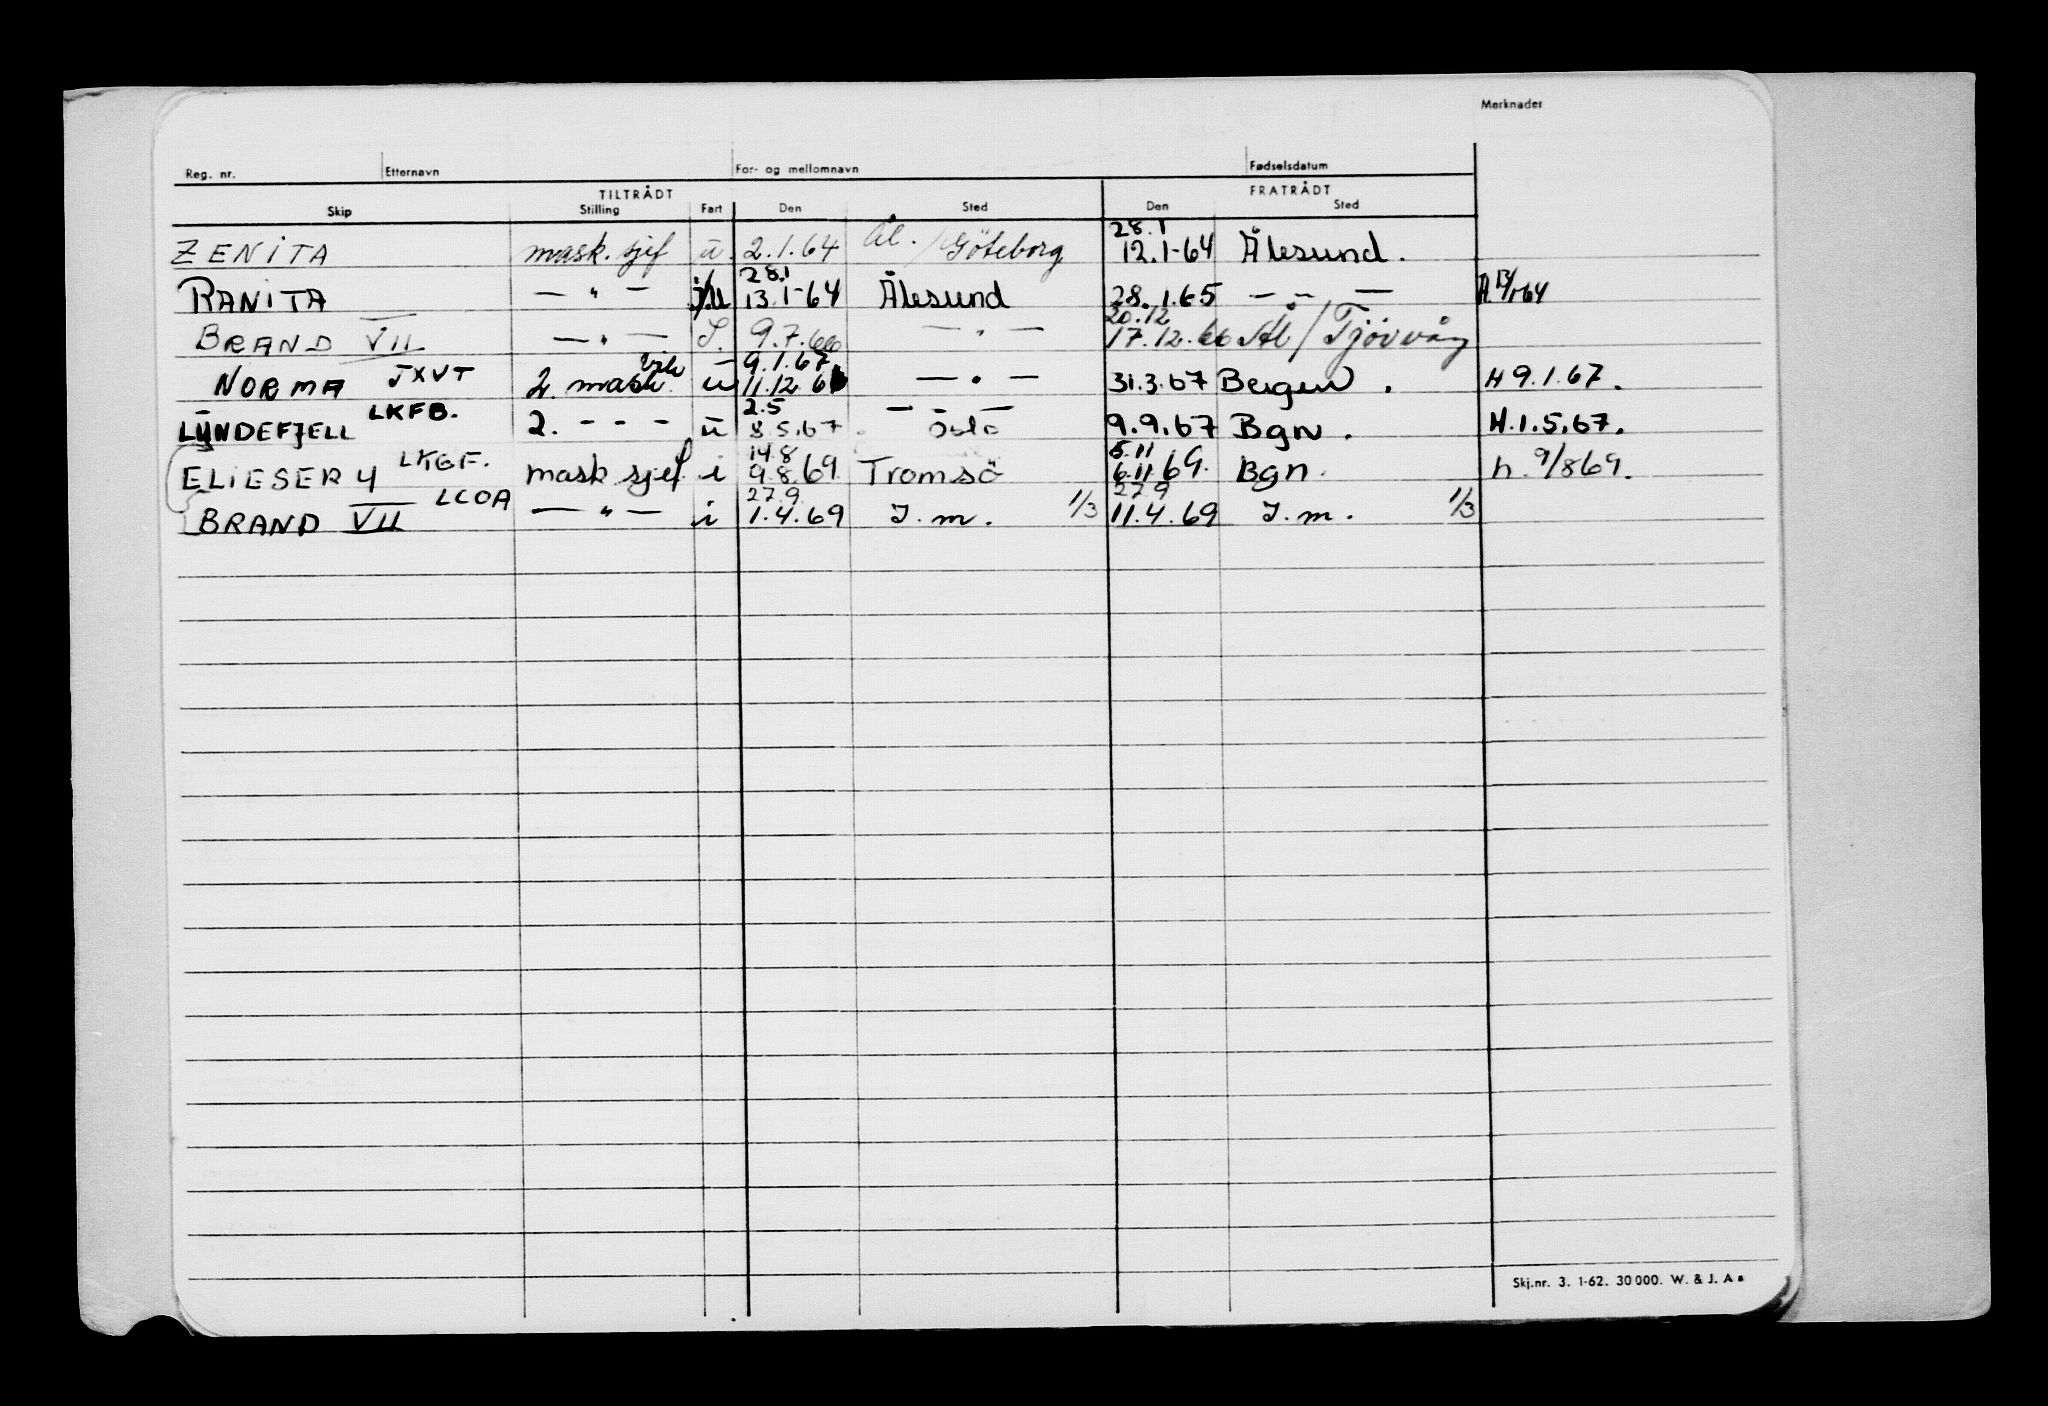 Merknader
Reg. nr. Etternavn For- og mellomnavn Fødselsdatum
TILTRÅDT FRATRÅDT
Skip Stilling Fart Den Sted Den Sted
28.1
ZENITA mask. sjef u. 2.1.64 Ål. / Göteborg 12.1-64 Ålesund.
28.1
RANITA — " — u 13.1-64 Ålesund 28.1.65 — " — A 13/1-64
20.12
BRAND VII — " — I. 9.7.66 — " — 17.12.66 Ål / Tjövvåg
vik 9.1.67
NORMA JXVT 2. mask. u 11.12.66 — " — 31.3.67 Bergen. H 9.1.67.
2.5
LYNDEFJELL LKFB. 2. - - - u 8.5.67 Oslo 9.9.67 Bgn. H.1.5.67.
14.8 5.11
ELIESER 4 LKGF. mask sjef. i 9.8.69 Tromsö 6.11.69. Bgn. h. 9/8 69.
27.9 27.9
BRAND VII LCOA — " — i 1.4.69 I.m. 1/3 11.4.69 I.m. 1/3
Skj.nr. 3. 1-62. 30 000. W. & J. As